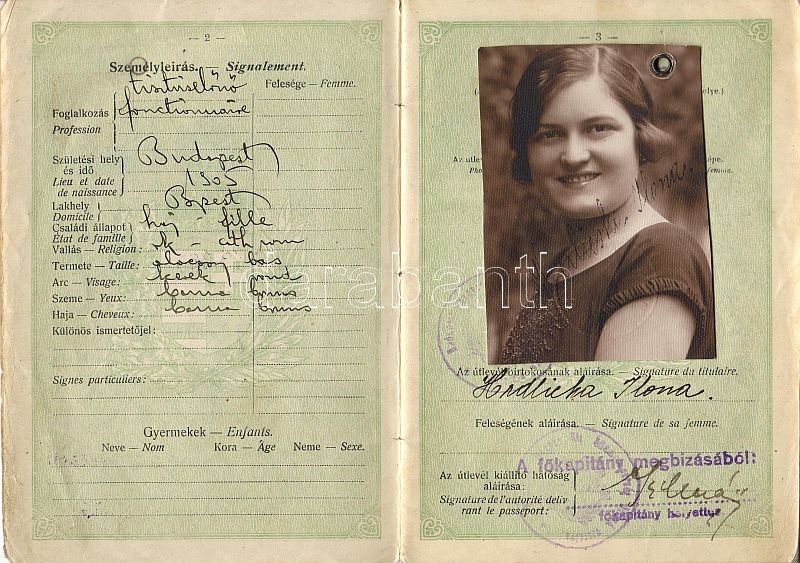 — 2 —
Személyleírás. — Signalement.
tisztviselőnő
Felesége — Femme.
Foglalkozás
Profession
fonctionnaire
Születési hely
és idő
Lieu et date
de naissance
Budapest
1905
Lakhely
Domicile
Bpest
Családi állapot
État de famille
haj — fille
Vallás — Religion:
rk — cath rom
Termete — Taille: alacsony bas
Arc — Visage: kerek rond
Szeme — Yeux: barna bruns
Haja — Cheveux: barna bruns
Különös ismertetőjel:
Signes particuliers:
Gyermekek — Enfants.
Neve — Nom Kora — Âge Neme — Sexe.
— 3 —
Az útlevél
Ilona
darabanth
Az útlevél birtokosának aláírása. — Signature du titulaire.
Hrdlicka Ilona.
Feleségének aláírása. — Signature de sa femme.
A főkapitány megbizásából:
Az útlevél kiállító hatóság
aláírása:
Signature de l'autorité déliv
rant le passeport:
főkapitány helyettes